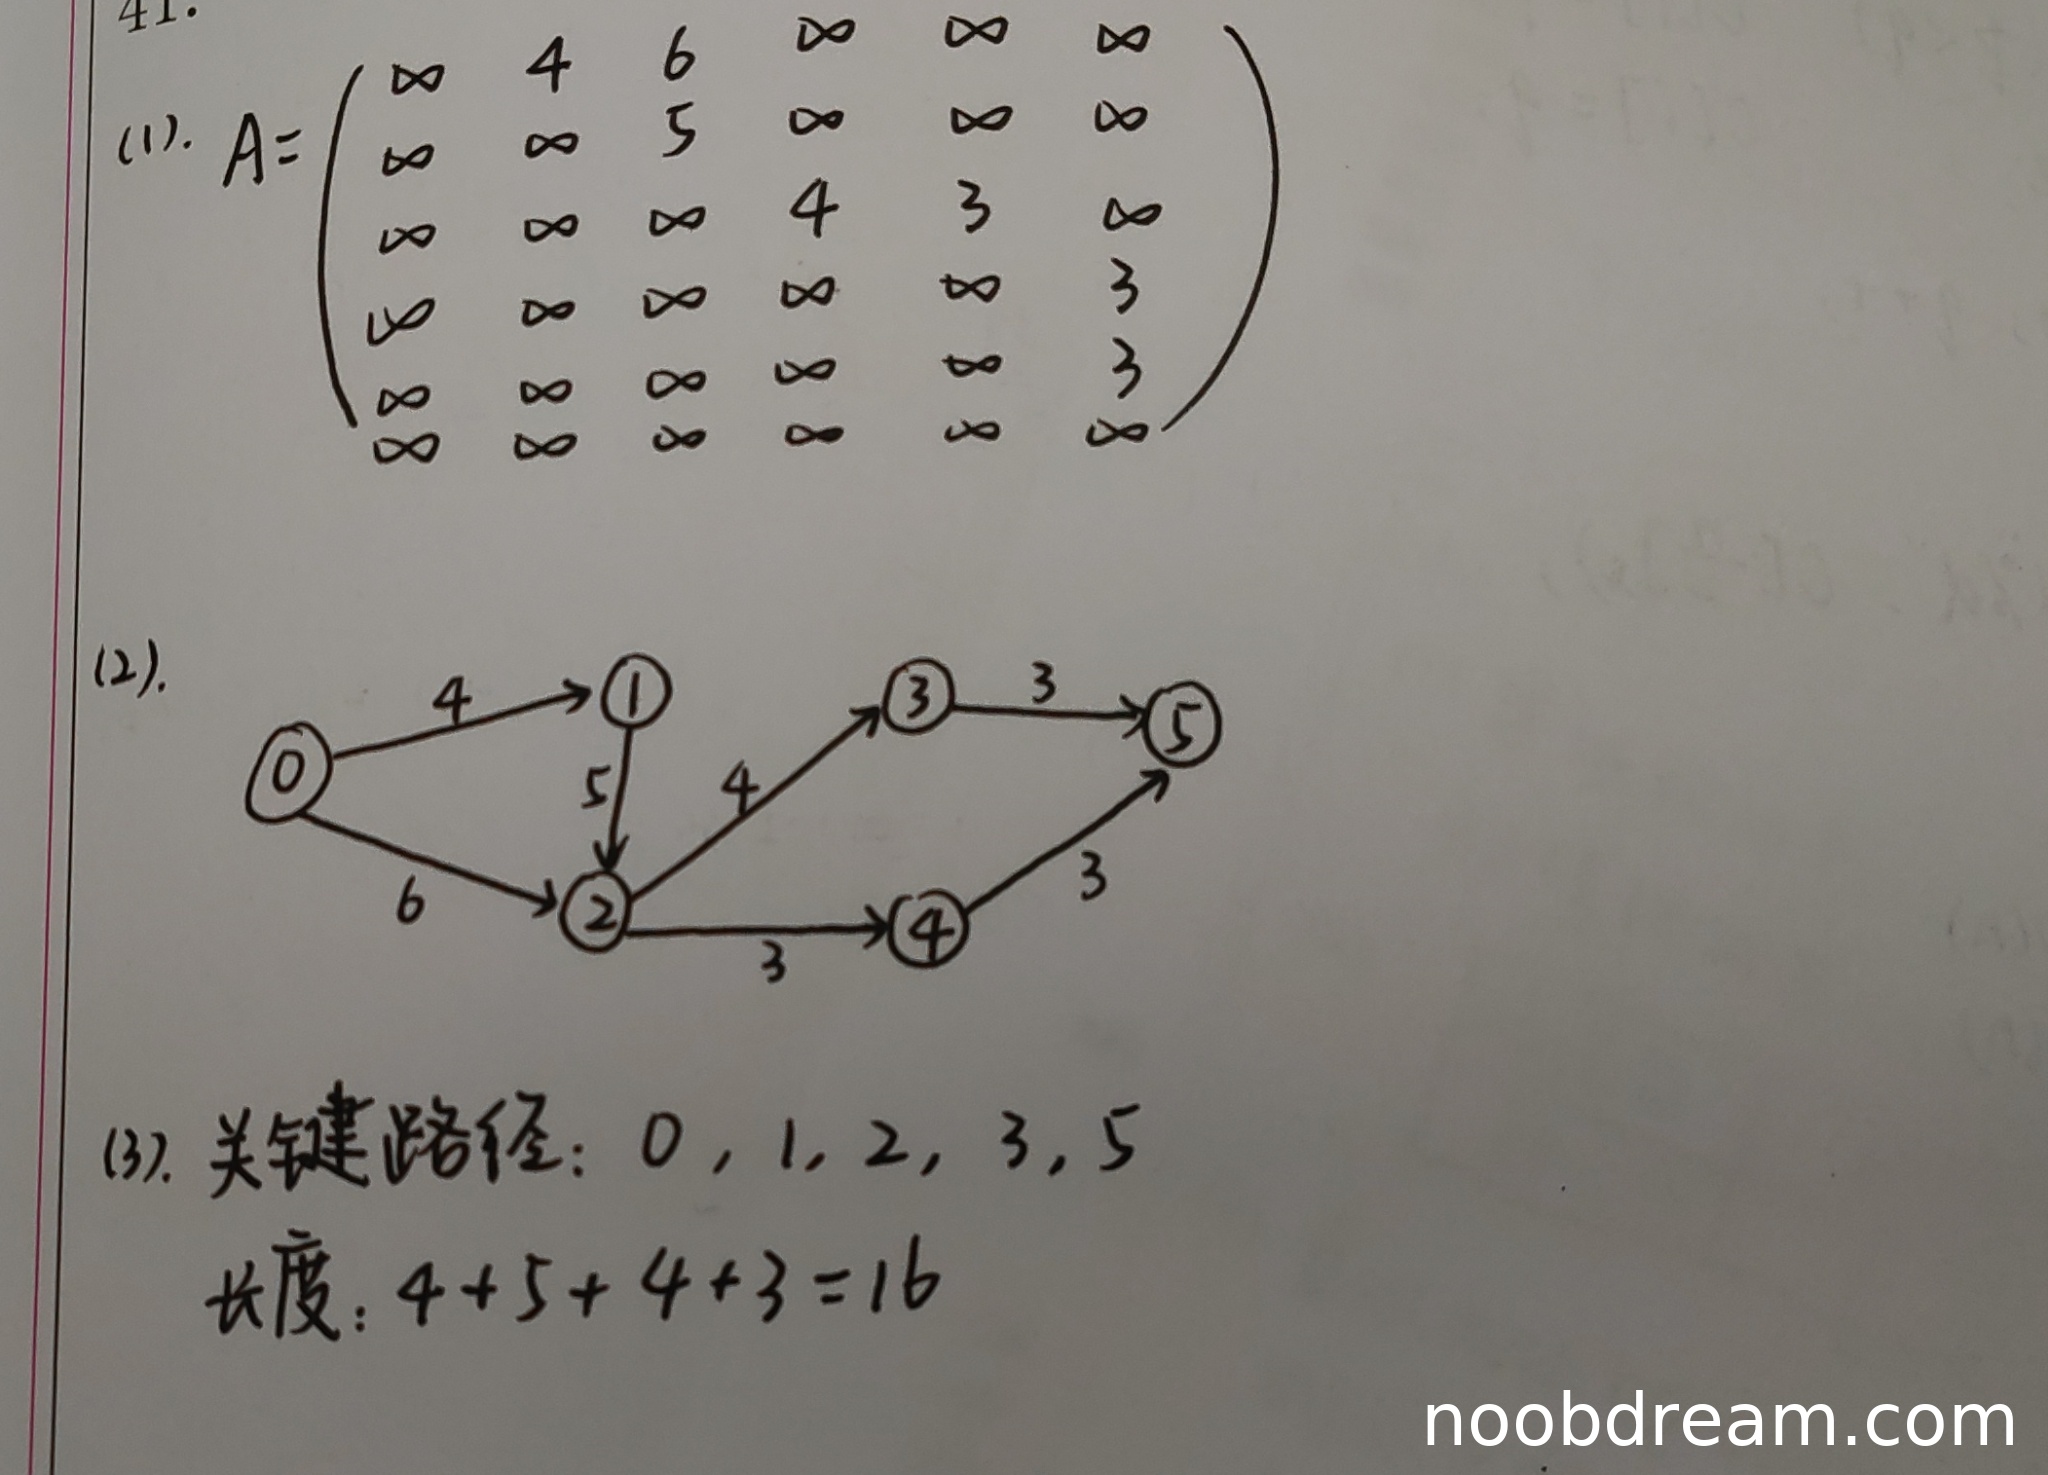 41.
(1). A=
∞ 4 6 ∞ ∞ ∞
∞ ∞ 5 ∞ ∞ ∞
∞ ∞ ∞ 4 3 ∞
∞ ∞ ∞ ∞ ∞ 3
∞ ∞ ∞ ∞ ∞ 3
∞ ∞ ∞ ∞ ∞ ∞
(2).
4 1 3 3
0 5 4 5
6 2 3 4 3
(3). 关键路径: 0, 1, 2, 3, 5
长度: 4+5+4+3=16
noobdream.com